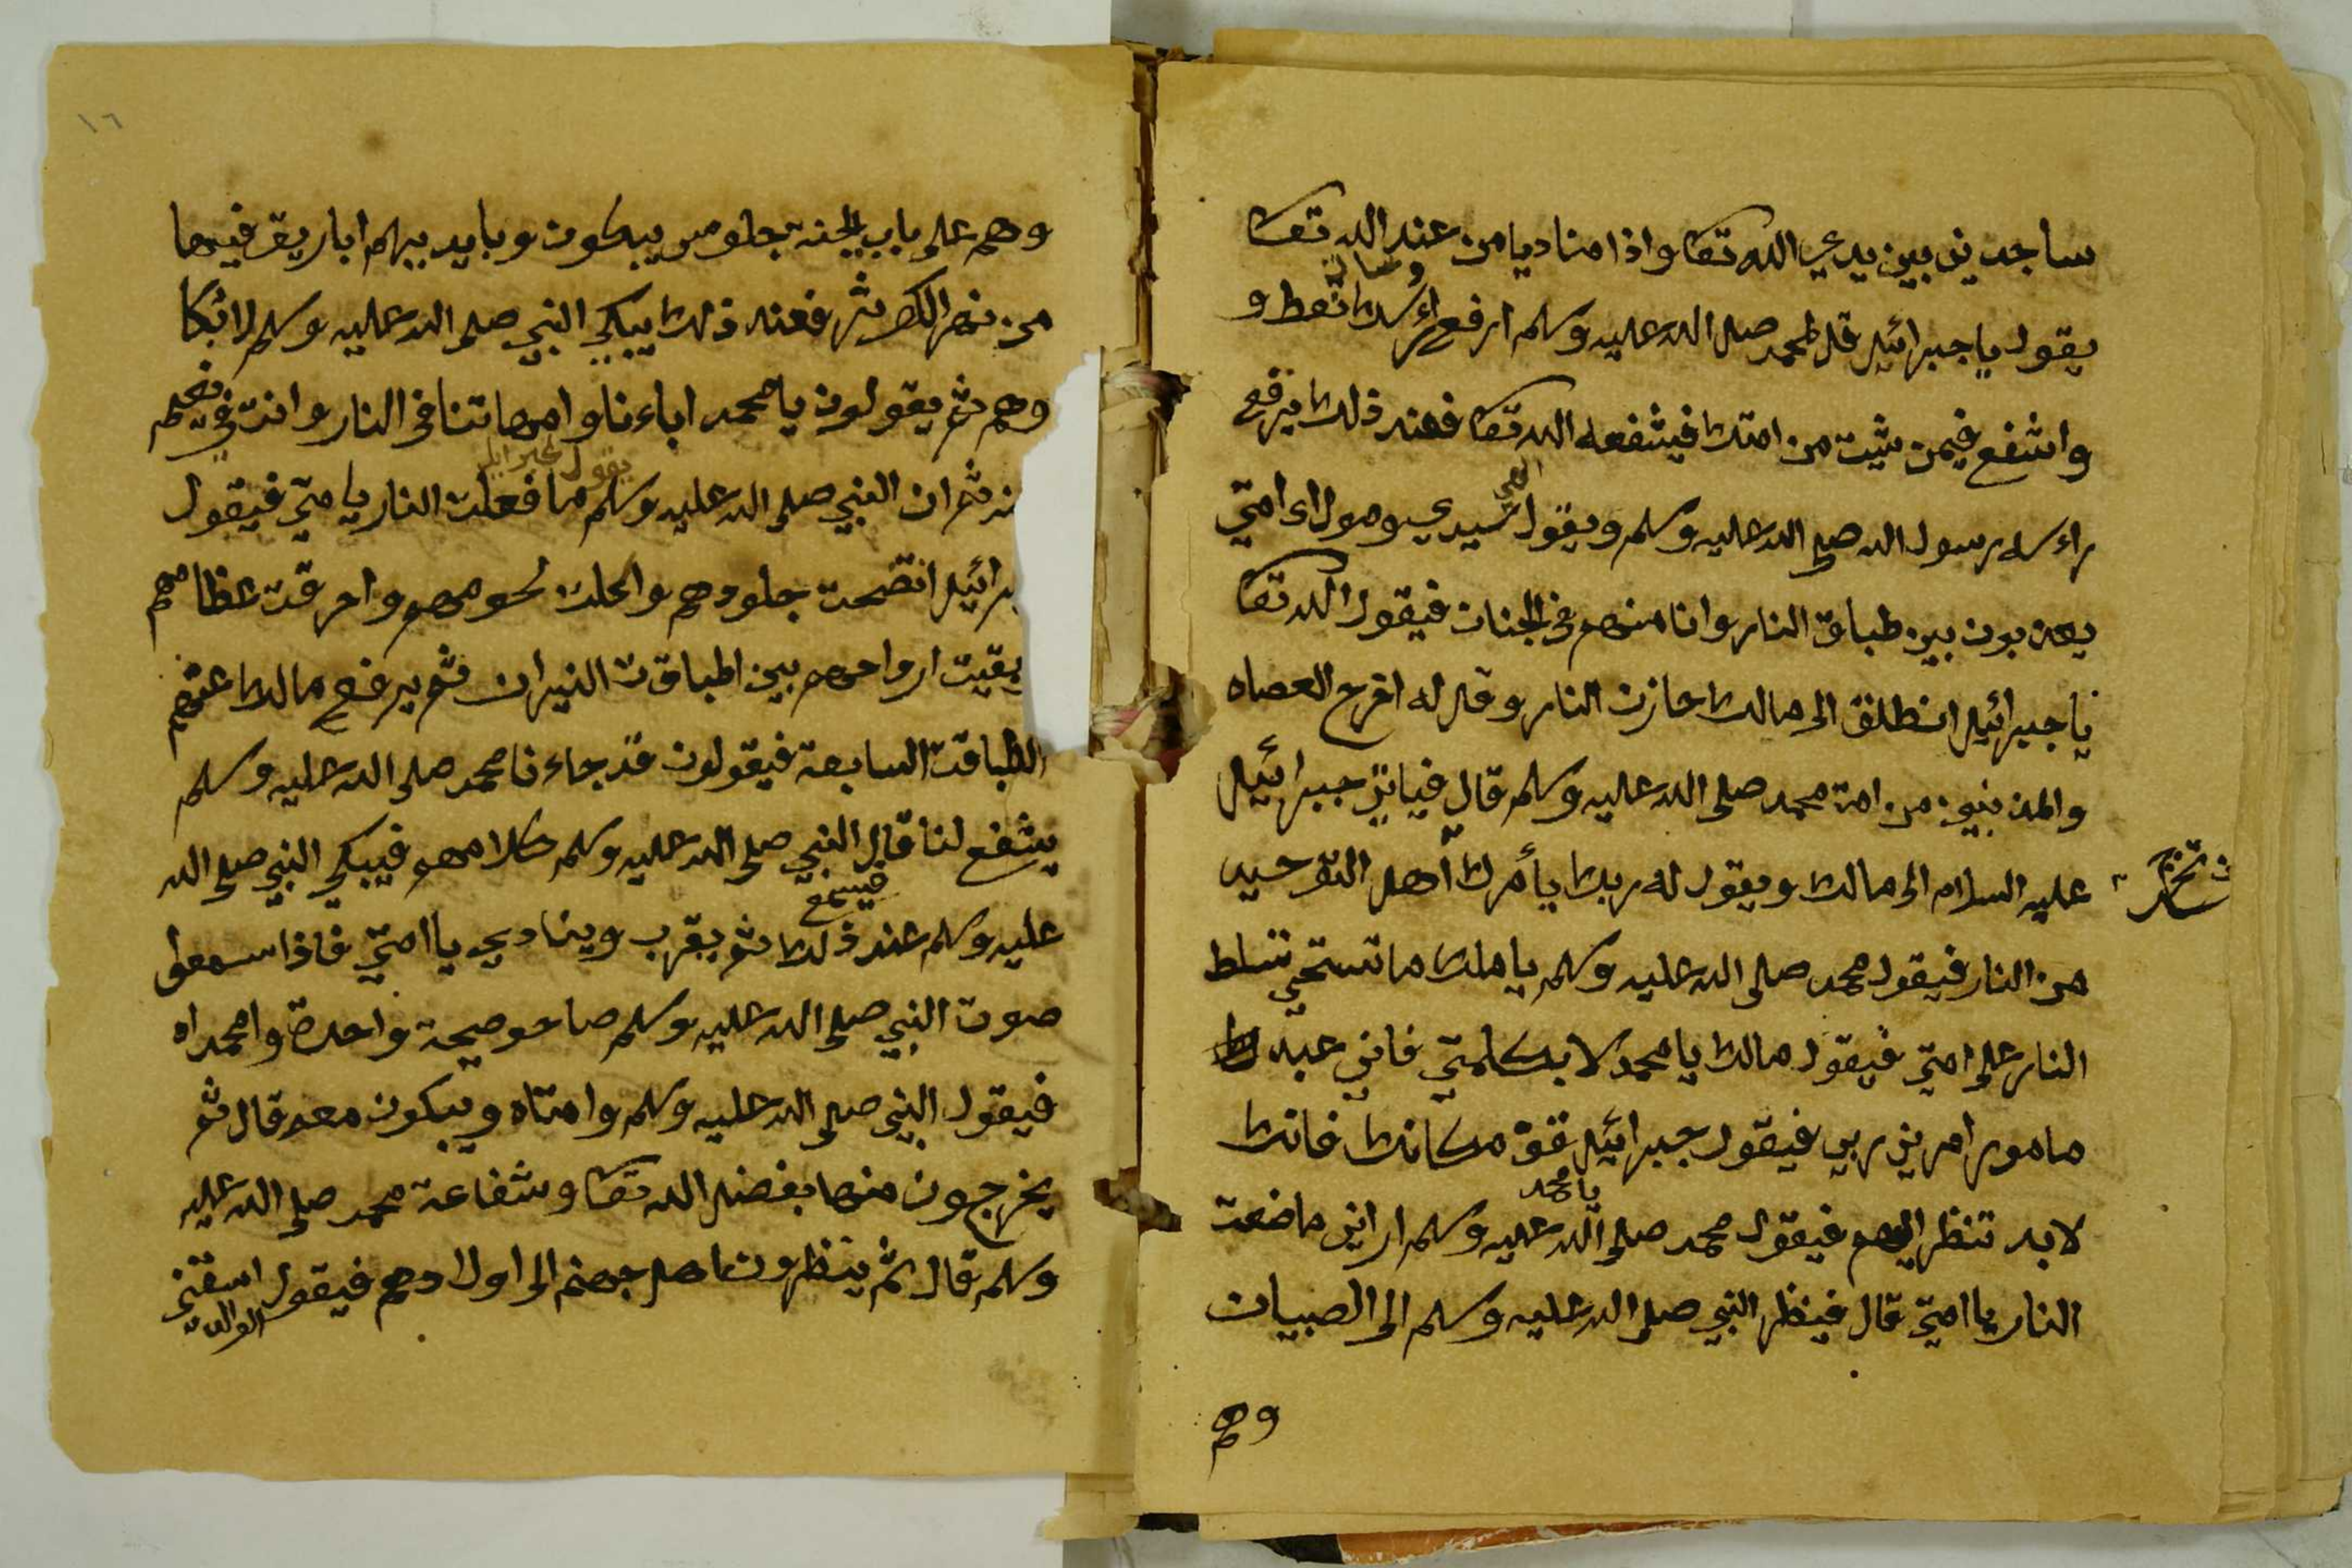 ساجدين بين يدي الله تعا واذا مناديا من عند الله تعا
يقول يا جبرائيل قل لمحمد صلى الله عليه وسلم ارفع راءسك وسال تعط و
واشفع فيمن شيت من امتك فيشفعه الله تعا فعند ذلك يرفع
راءسه رسول الله صلى الله عليه وسلم ويقول الهي سيدي ومولاى امتي
يعذبون بين طباق النار وانا منهم في الجنان فيقول الله تعا
يا جبرائيل انطلق الى مالك خازن النار وقل له اخرج العصاه
والمذنبين من امة محمد صلى الله عليه وسلم قال فياتي جبرائيل
عليه السلام الى مالك ويقول له ربك يأمرك أهل التوحيد
تخرج
من النار فيقول محمد صلى الله عليه وسلم يا ملك ما تستحي تسلط
النار على امتي فيقول مالك يا محمد لا بكلمتي فاني عبد
مامور امرني ربي فيقول جبرائيل قوّ مكانك فانك
لابد تنظر اليهم فيقول محمد صلى الله عليه وسلم يا محمد اراني ماضعت
النار يا امتي قال فينظر النبي صلى الله عليه وسلم الى الصبيان
وهم
١٦
وهم على باب الجنة جلوس يبكون وبايديهم اباريق فيها
من نهر الكوثر فعند ذلك يبكي النبي صلى الله عليه وسلم لابكا
وهم ثم يقولون يا محمد اباءنا وامهاتنا في النار وانت في نعيم
ثم ان النبي صلى الله عليه وسلم يقول لجبرايل ما فعلت النار يا متي فيقول
برائيل انضحت جلودهم واكلت لحومهم واحرقت عظامهم
بقيت ارواحهم بين اطباقت النيران ثم يرفع مالك عنهم
الطباقت السابعة فيقولون قد جاءنا محمد صلى الله عليه وسلم
يشفع لنا قال النبي صلى الله عليه وسلم كلامهم فيبكي النبي صلى الله
فيسمع
عليه وسلم عند ذلك ثم يقرب وينادي يا امتي فاذا سمعوا
صوت النبي صلى الله عليه وسلم صاحو صيحة واحدة وا محمداه
فيقول النبي صلى الله عليه وسلم وا امتاه ويبكون معه قال ثم
يخرجون منها بفضل الله تعا وشفاعة محمد صلى الله عليه
وسلم قال ثم ينظرون اهل جهنم الى اولادهم فيقول الوالد اسقني